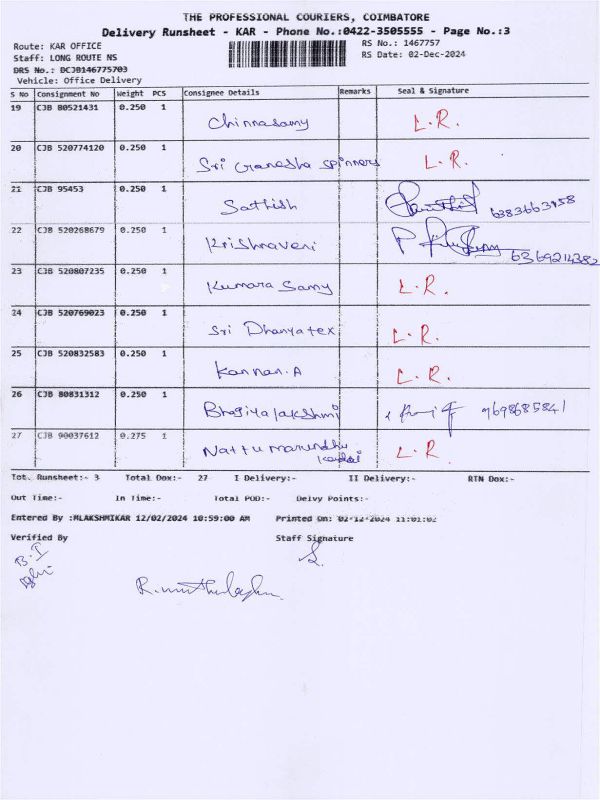 THE PROFESSIONAL COURIERS, COIMBATORE
Delivery Runsheet - KAR - Phone No.:0422-3505555 - Page No.:3
Route: KAR OFFICE
RS No.: 1467757
Staff: LONG ROUTE NS
RS Date: 02-Dec-2024
DRS No.: DCJB146775703
Vehicle: Office Delivery
S No Consignment No Weight PCS Consignee Details Remarks Seal & Signature
19 CJB 80521431 0.250 1 Chinnasamy L.R.
20 CJB 520774120 0.250 1 Sri Ganesha spinners L.R.
21 CJB 95453 0.250 1 Sathish
22 CJB 520268679 0.250 1 Krishnaveni 6369214382
23 CJB 520807235 0.250 1 Kumara Samy L.R.
24 CJB 520769023 0.250 1 Sri Dhanyatex L.R.
25 CJB 520832583 0.250 1 Kannan.A L.R.
26 CJB 80831312 0.250 1 Bhagiyalakshmi 9698685841
27 CJB 90037612 0.275 1 Nattu marundhu L.R
Tot. Runsheet:- 3 Total Dox:- 27 I Delivery:- II Delivery:- RTN Dox:-
Out Time:- In Time:- Total POD:- Delvy Points:-
Entered By :MLAKSHMIKAR 12/02/2024 10:59:00 AM Printed On: 02-12-2024 11:01:02
Verified By Staff Signature